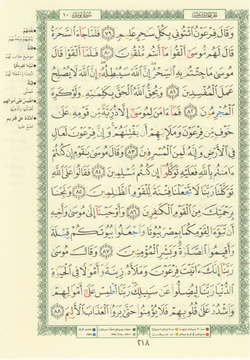 وَقَالَ فِرْعَوْنُ ٱئْتُونِى بِكُلِّ سَٰحِرٍ عَلِيمٍ ٧٩ فَلَمَّا جَآءَ ٱلسَّحَرَةُ
قَالَ لَهُم مُّوسَىٰٓ أَلْقُوا۟ مَآ أَنتُم مُّلْقُونَ ٨٠ فَلَمَّآ أَلْقَوْا۟ قَالَ
مُوسَىٰ مَا جِئْتُم بِهِ ٱلسِّحْرُ إِنَّ ٱللَّهَ سَيُبْطِلُهُۥٓ إِنَّ ٱللَّهَ لَا يُصْلِحُ
عَمَلَ ٱلْمُفْسِدِينَ ٨١ وَيُحِقُّ ٱللَّهُ ٱلْحَقَّ بِكَلِمَٰتِهِۦ وَلَوْ كَرِهَ
ٱلْمُجْرِمُونَ ٨٢ فَمَآ ءَامَنَ لِمُوسَىٰٓ إِلَّا ذُرِّيَّةٌ مِّن قَوْمِهِۦ عَلَىٰ
خَوْفٍ مِّن فِرْعَوْنَ وَمَلَإِي۟هِمْ أَن يَفْتِنَهُمْ وَإِنَّ فِرْعَوْنَ لَعَالٍ
فِى ٱلْأَرْضِ وَإِنَّهُۥ لَمِنَ ٱلْمُسْرِفِينَ ٨٣ وَقَالَ مُوسَىٰ يَٰقَوْمِ إِن كُنتُمْ
ءَامَنتُم بِٱللَّهِ فَعَلَيْهِ تَوَكَّلُوٓا۟ إِن كُنتُم مُّسْلِمِينَ ٨٤ فَقَالُوا۟ عَلَى ٱللَّهِ
تَوَكَّلْنَا رَبَّنَا لَا تَجْعَلْنَا فِتْنَةً لِّلْقَوْمِ ٱلظَّٰلِمِينَ ٨٥ وَنَجِّنَا
بِرَحْمَتِكَ مِنَ ٱلْقَوْمِ ٱلْكَٰفِرِينَ ٨٦ وَأَوْحَيْنَآ إِلَىٰ مُوسَىٰ وَأَخِيهِ
أَن تَبَوَّءَا لِقَوْمِكُمَا بِمِصْرَ بُيُوتًا وَٱجْعَلُوا۟ بُيُوتَكُمْ قِبْلَةً
وَأَقِيمُوا۟ ٱلصَّلَوٰةَ وَبَشِّرِ ٱلْمُؤْمِنِينَ ٨٧ وَقَالَ مُوسَىٰ
رَبَّنَآ إِنَّكَ ءَاتَيْتَ فِرْعَوْنَ وَمَلَأَهُۥ زِينَةً وَأَمْوَٰلًا فِى ٱلْحَيَوٰةِ
ٱلدُّنْيَا رَبَّنَا لِيُضِلُّوا۟ عَن سَبِيلِكَ رَبَّنَا ٱطْمِسْ عَلَىٰٓ أَمْوَٰلِهِمْ
وَٱشْدُدْ عَلَىٰ قُلُوبِهِمْ فَلَا يُؤْمِنُوا۟ حَتَّىٰ يَرَوُا۟ ٱلْعَذَابَ ٱلْأَلِيمَ ٨٨
٢١٨